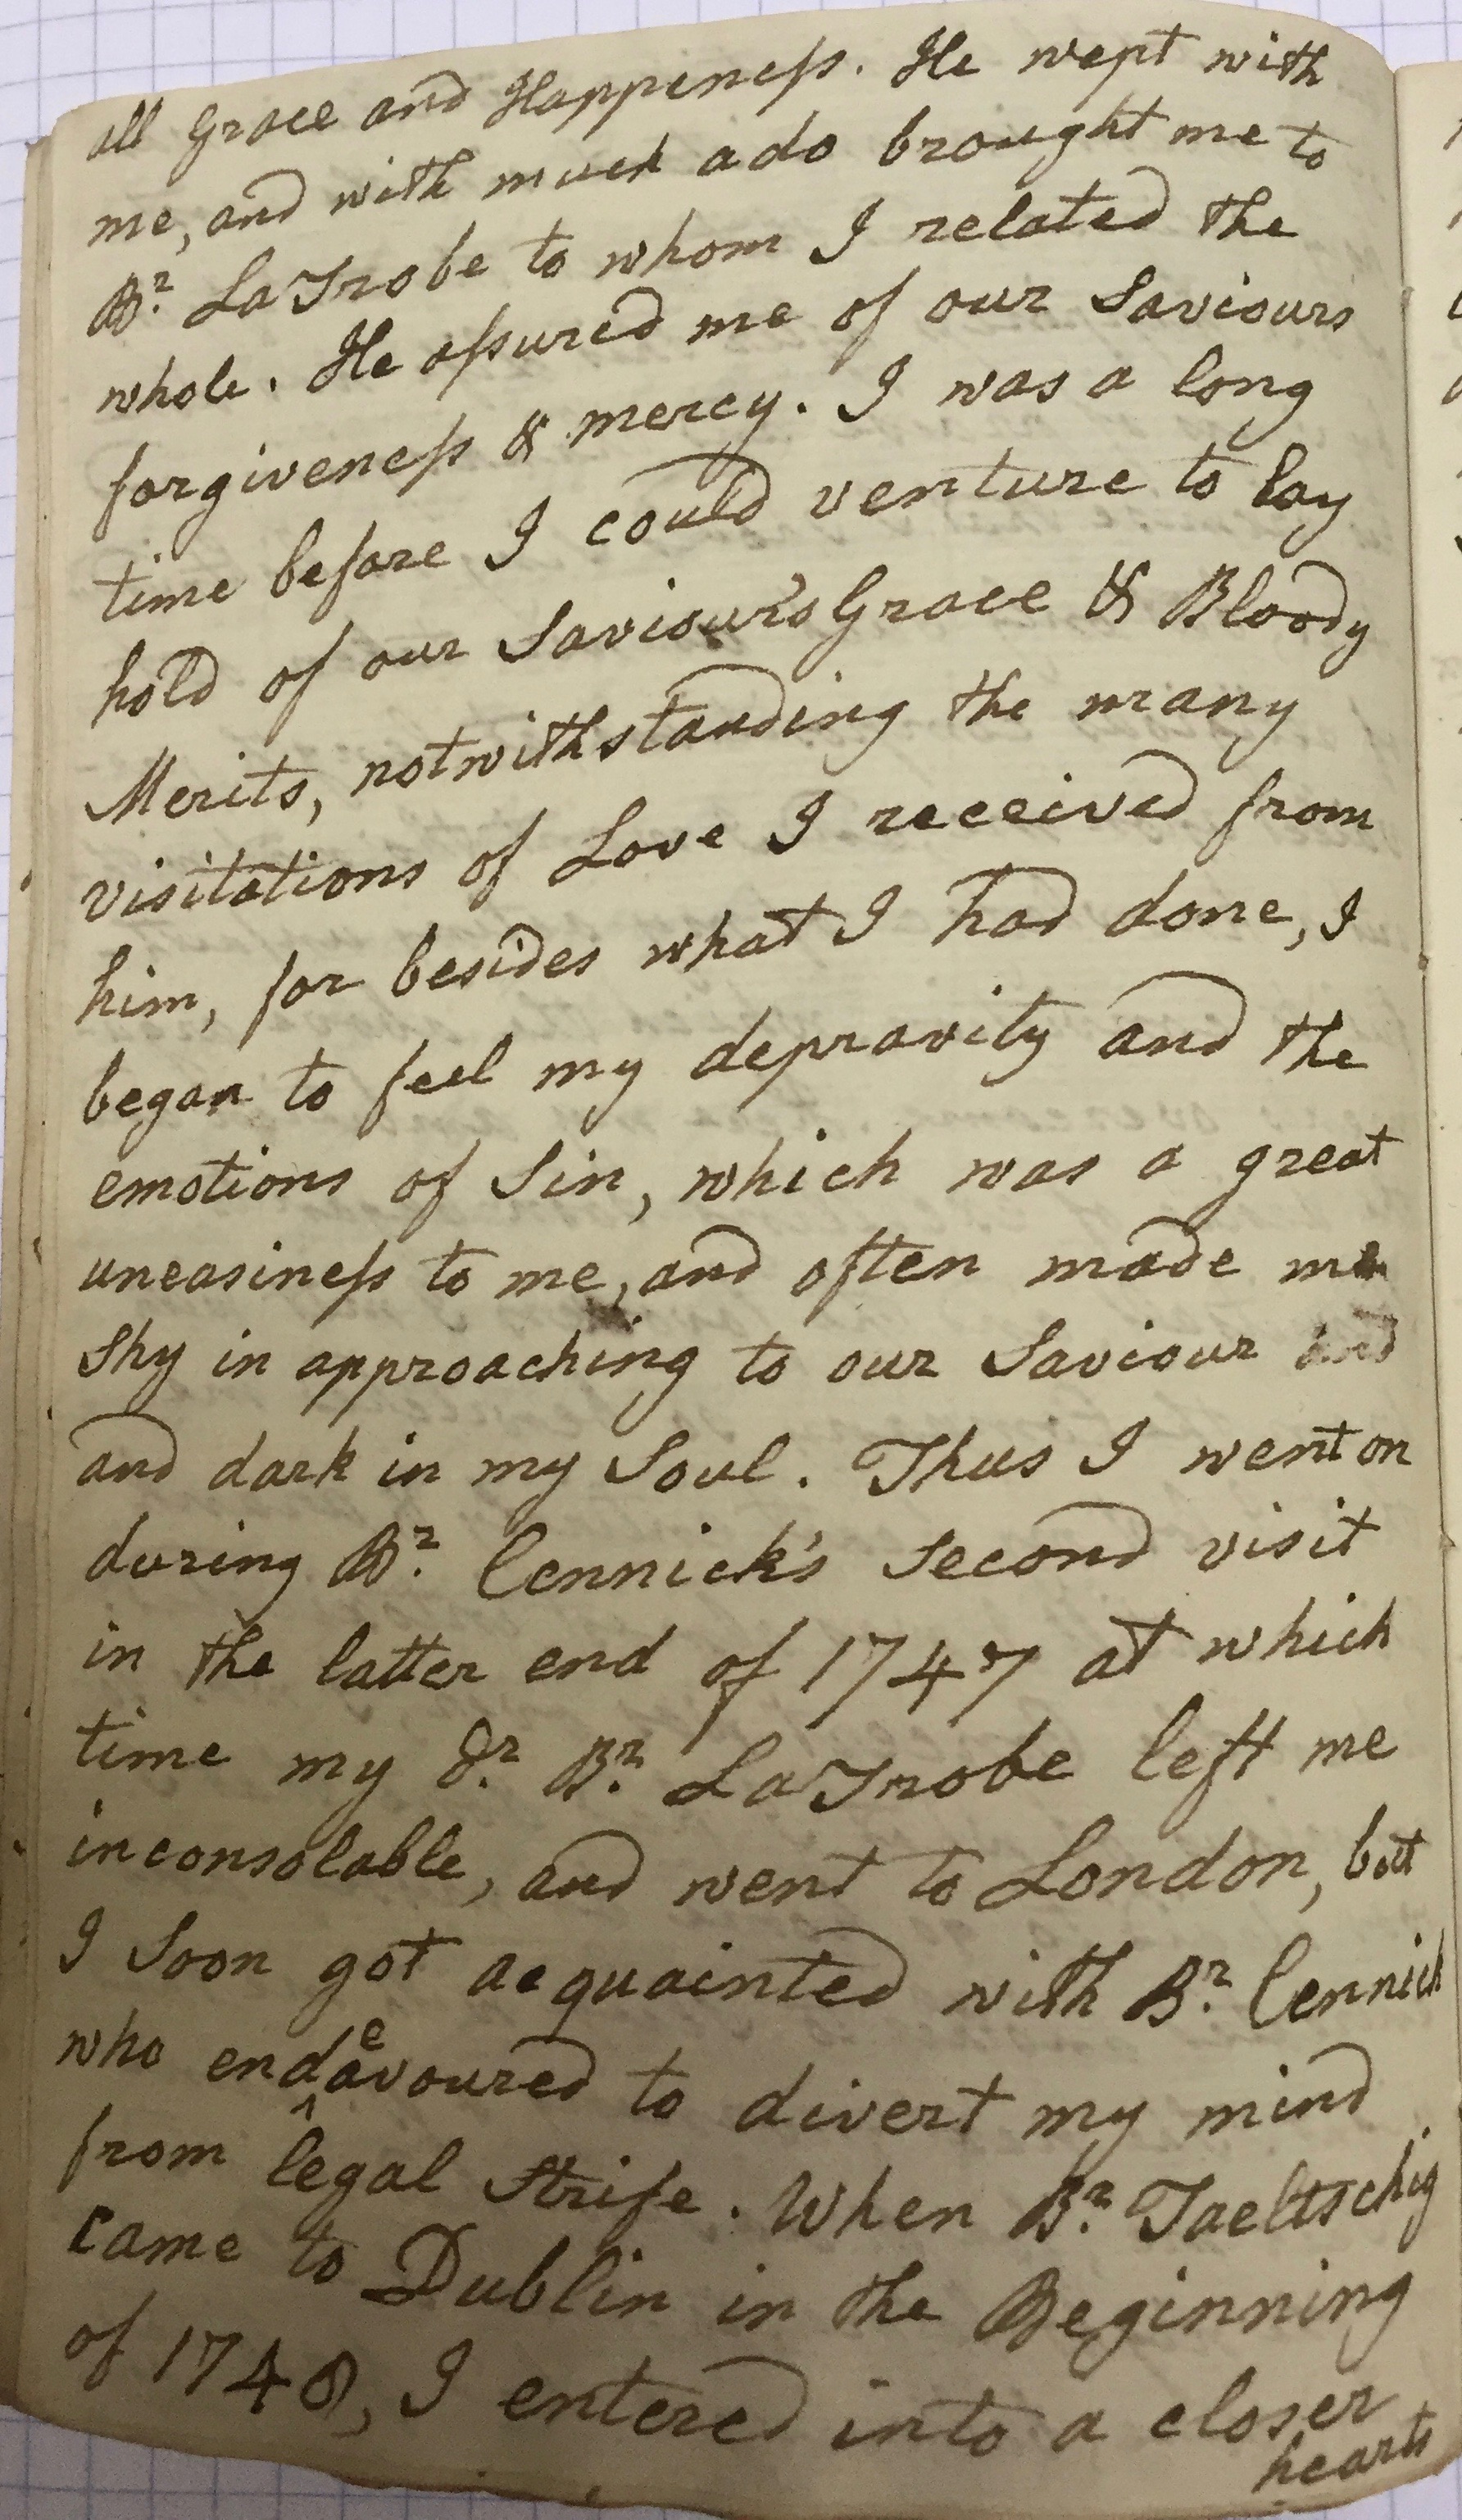 all Grace and Happeness. He wept with
me, and with much ado brought me to
Br. LaTrobe to whom I related the
whole. He assured me of our Saviours
forgiveness & mercy. I was a long
time before I could venture to lay
hold of our Saviour's Grace & Bloody
Merits, notwithstanding the many
visitations of Love I received from
him, for besides what I had done, I
began to feel my depravity and the
emotions of Sin, which was a great
uneasiness to me, and often made me
shy in approaching to our Saviour and
and dark in my Soul. Thus I went on
during Br. Cennick's second visit
in the latter end of 1747 at which
time my dr. Br. LaTrobe left me
inconsolable, and went to London, but
I soon got acquainted with Br. Cennick
who endeavoured to divert my mind
from legal Strife. When Br. Taeltschig
came to Dublin in the Beginning
of 1748, I entered into a closer
hearts